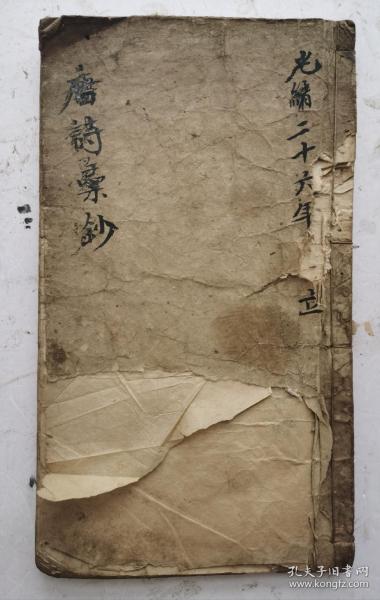 光緒二十六年 立
唐詩彙鈔
孔夫子旧书网
www.kongfz.com